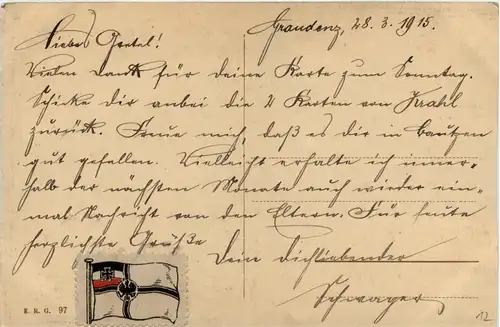 Graudenz, 28. 3. 1915.
Liebes Gretel!
Vielen Dank für deine Karte zum Sonntag.
Schicke dir anbei die 2 Karten von Krahl
zurück. Freue mich, daß es dir in Bautzen
gut gefallen. Vielleicht erfalte ich inner-
halb der nächsten Monate auch wieder ein-
mal Nachricht von den Eltern. Für heute
herzlichste Grüße
Dein dichliebender
Schwager
E. R. G. 97
12